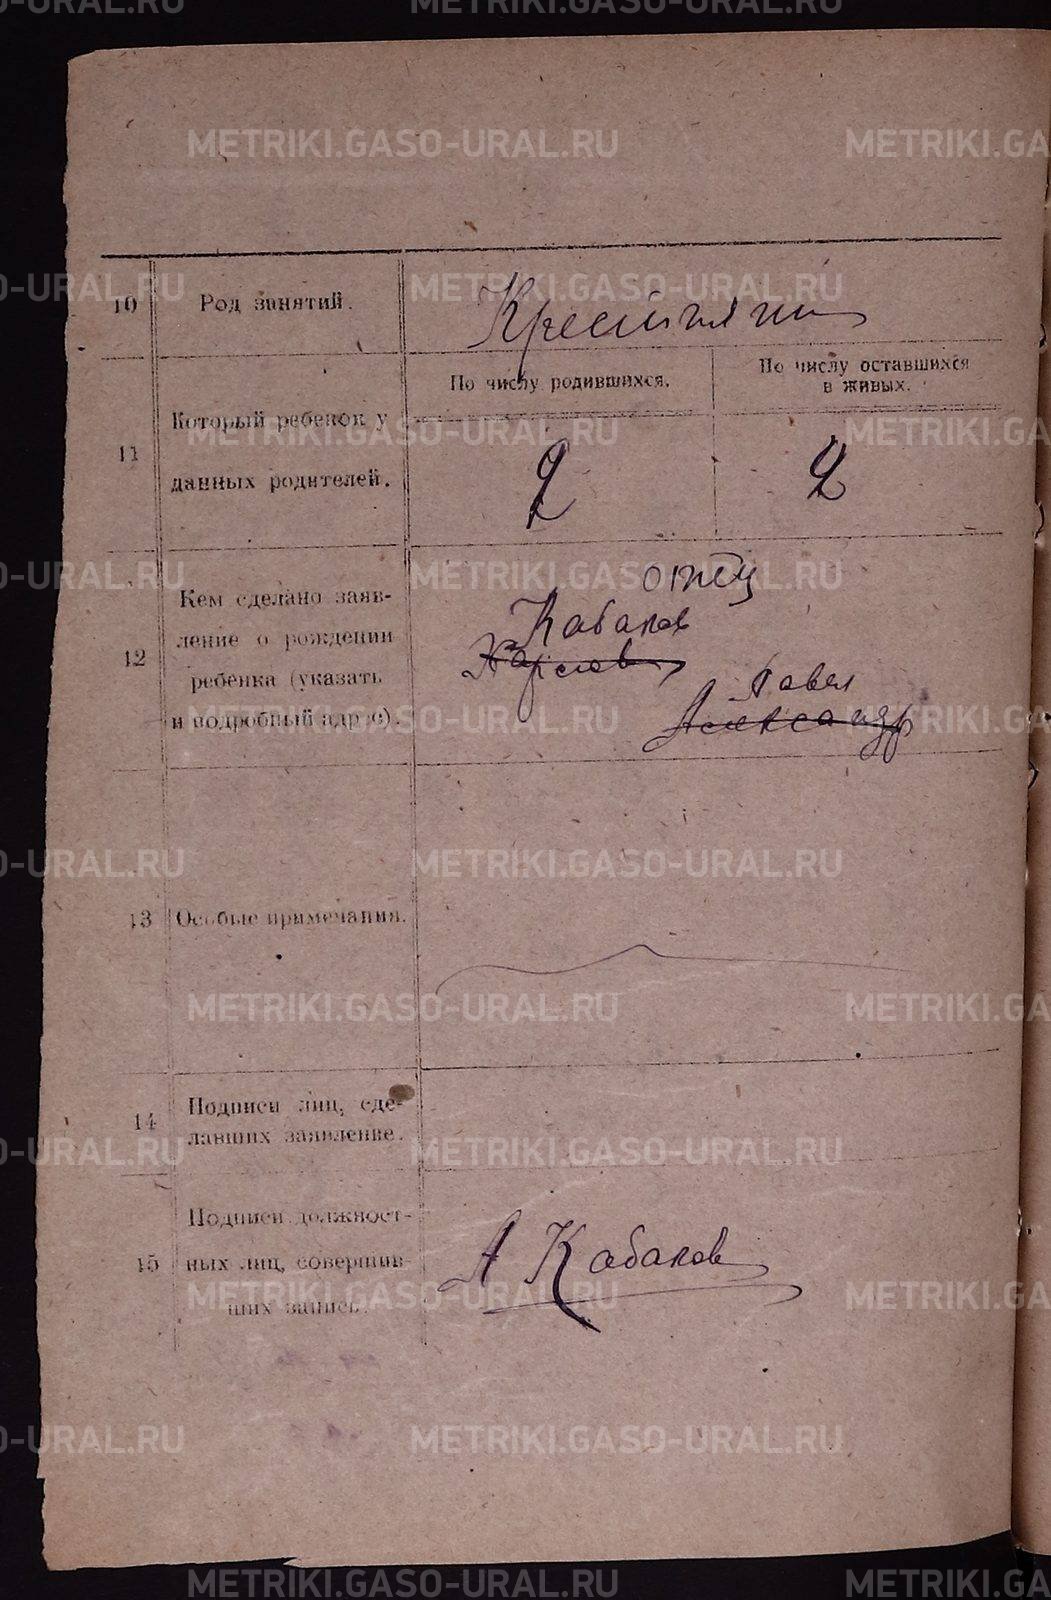 METRIKI.GASO-URAL.RU
10
Род занятий.
Крестьянин
11
Который ребенок у
данных родителей.
По числу родившихся.
По числу оставшихся
в живых.
2
2
12
Кем сделано заяв-
ление о рождении
ребенка (указать
и подробный адрес).
отец
Кабаков
Павел
Александр
13
Особые примечания.
14
Подписи лиц, сде-
лавших заявление.
15
Подписи должност-
ных лиц, совершив-
ших запись.
А Кабаков